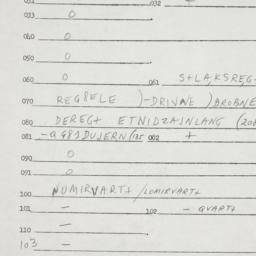 031 032 +
033 0
040 0
050 0
060 0 061 S+LAKSREG+
070 REG8ELE )-DRIVNE )BROBNE
080 DEREG+ ETNIDZAINLANG (20
081 002 +
090 0
091 0
100 NUMIRVART+/LOMIRVART+
101 - 102 - QVART+
110 —
103 —